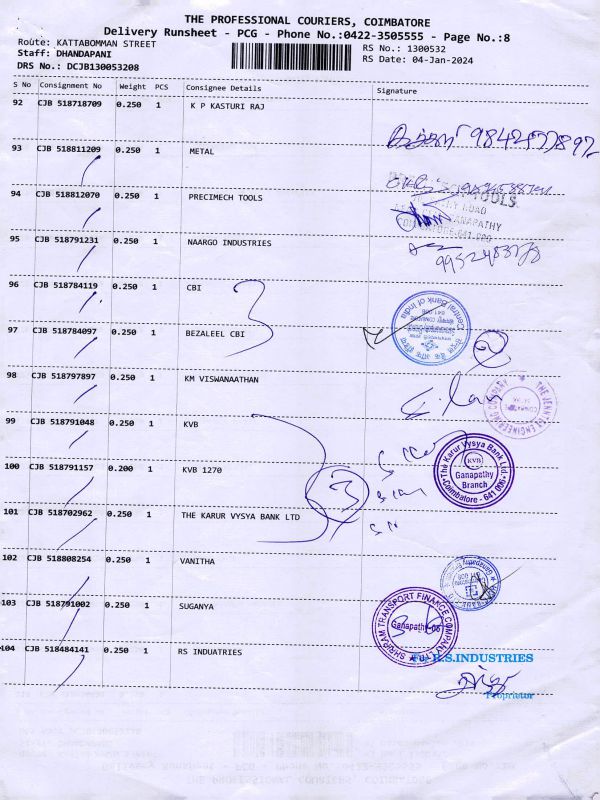 THE PROFESSIONAL COURIERS, COIMBATORE
Delivery Runsheet - PCG - Phone No.:0422-3505555 - Page No.:8
Route: KATTABOMMAN STREET
RS No.: 1300532
Staff: DHANDAPANI
RS Date: 04-Jan-2024
DRS No.: DCJB130053208
S No Consignment No Weight PCS Consignee Details Signature
92 CJB 518718709 0.250 1 K P KASTURI RAJ
93 CJB 518811209 0.250 1 METAL
94 CJB 518812070 0.250 1 PRECIMECH TOOLS
TOOLS
95 CJB 518791231 0.250 1 NAARGO INDUSTRIES
96 CJB 518784119 0.250 1 CBI
3
Central Bank of India
97 CJB 518784097 0.250 1 BEZALEEL CBI
2
98 CJB 518797897 0.250 1 KM VISWANAATHAN
99 CJB 518791048 0.250 1 KVB
The Karur Vysya Bank Ltd.
KVB
Ganapathy
Branch
Coimbatore - 641 006
100 CJB 518791157 0.200 1 KVB 1270
3
101 CJB 518702962 0.250 1 THE KARUR VYSYA BANK LTD
102 CJB 518808254 0.250 1 VANITHA
103 CJB 518791002 0.250 1 SUGANYA
SHRIRAM TRANSPORT FINANCE COMPANY
Ganapathy-06
104 CJB 518484141 0.250 1 RS INDUATRIES
For R.S.INDUSTRIES
Proprietor